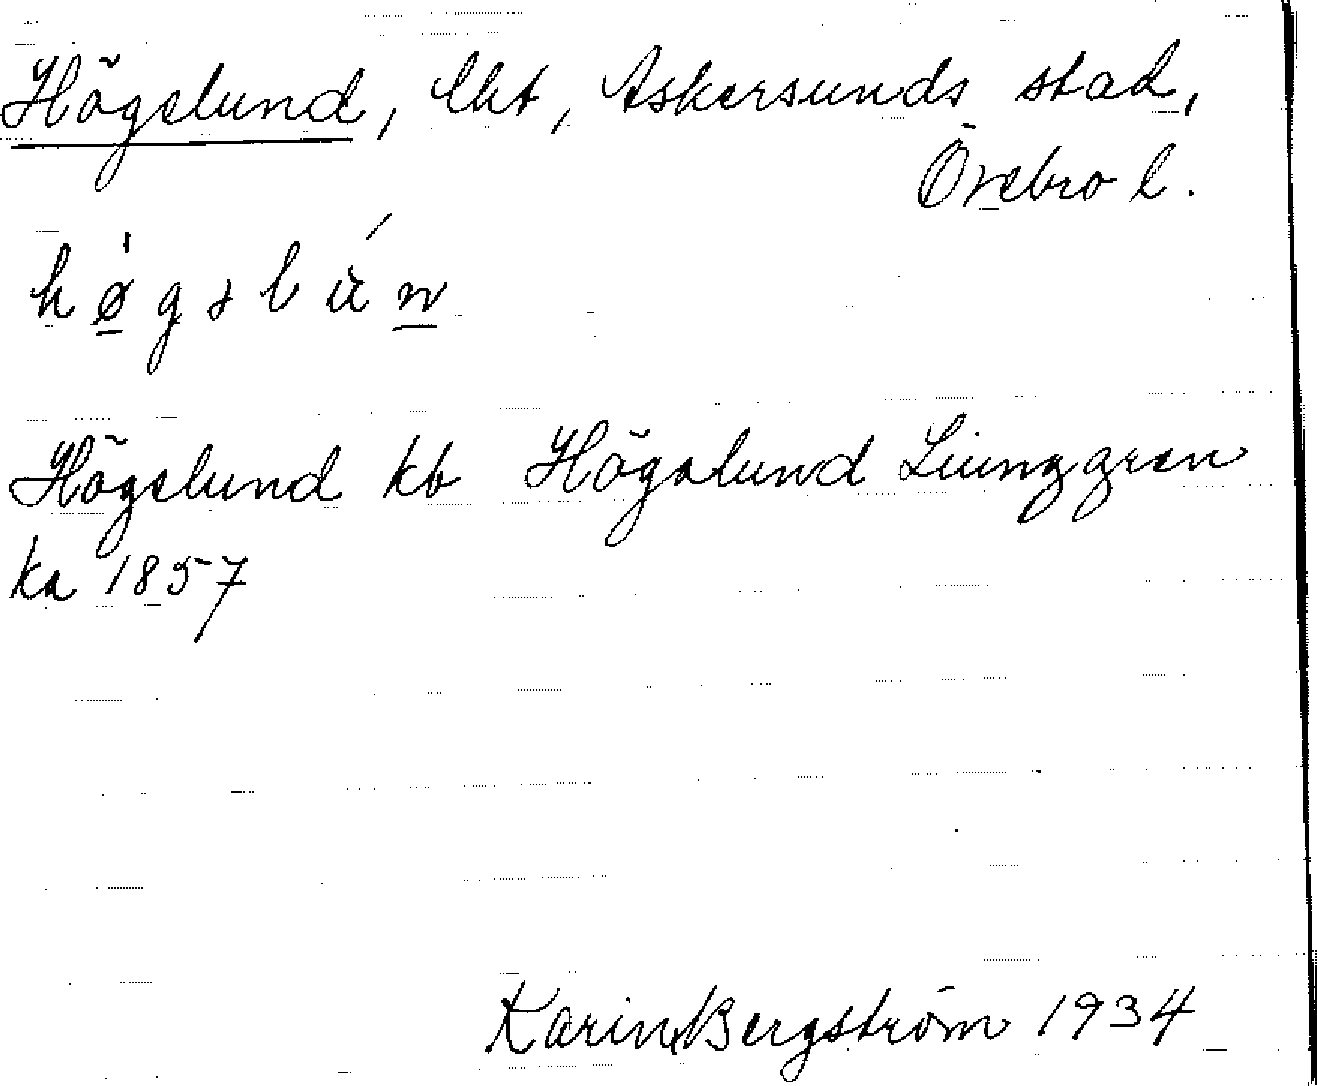 Högslund, lht, Askersunds stad,
Örebro l.
høgslun
Högslund kb Högslund Liunggren
ka 1857
Karin Bergström 1934